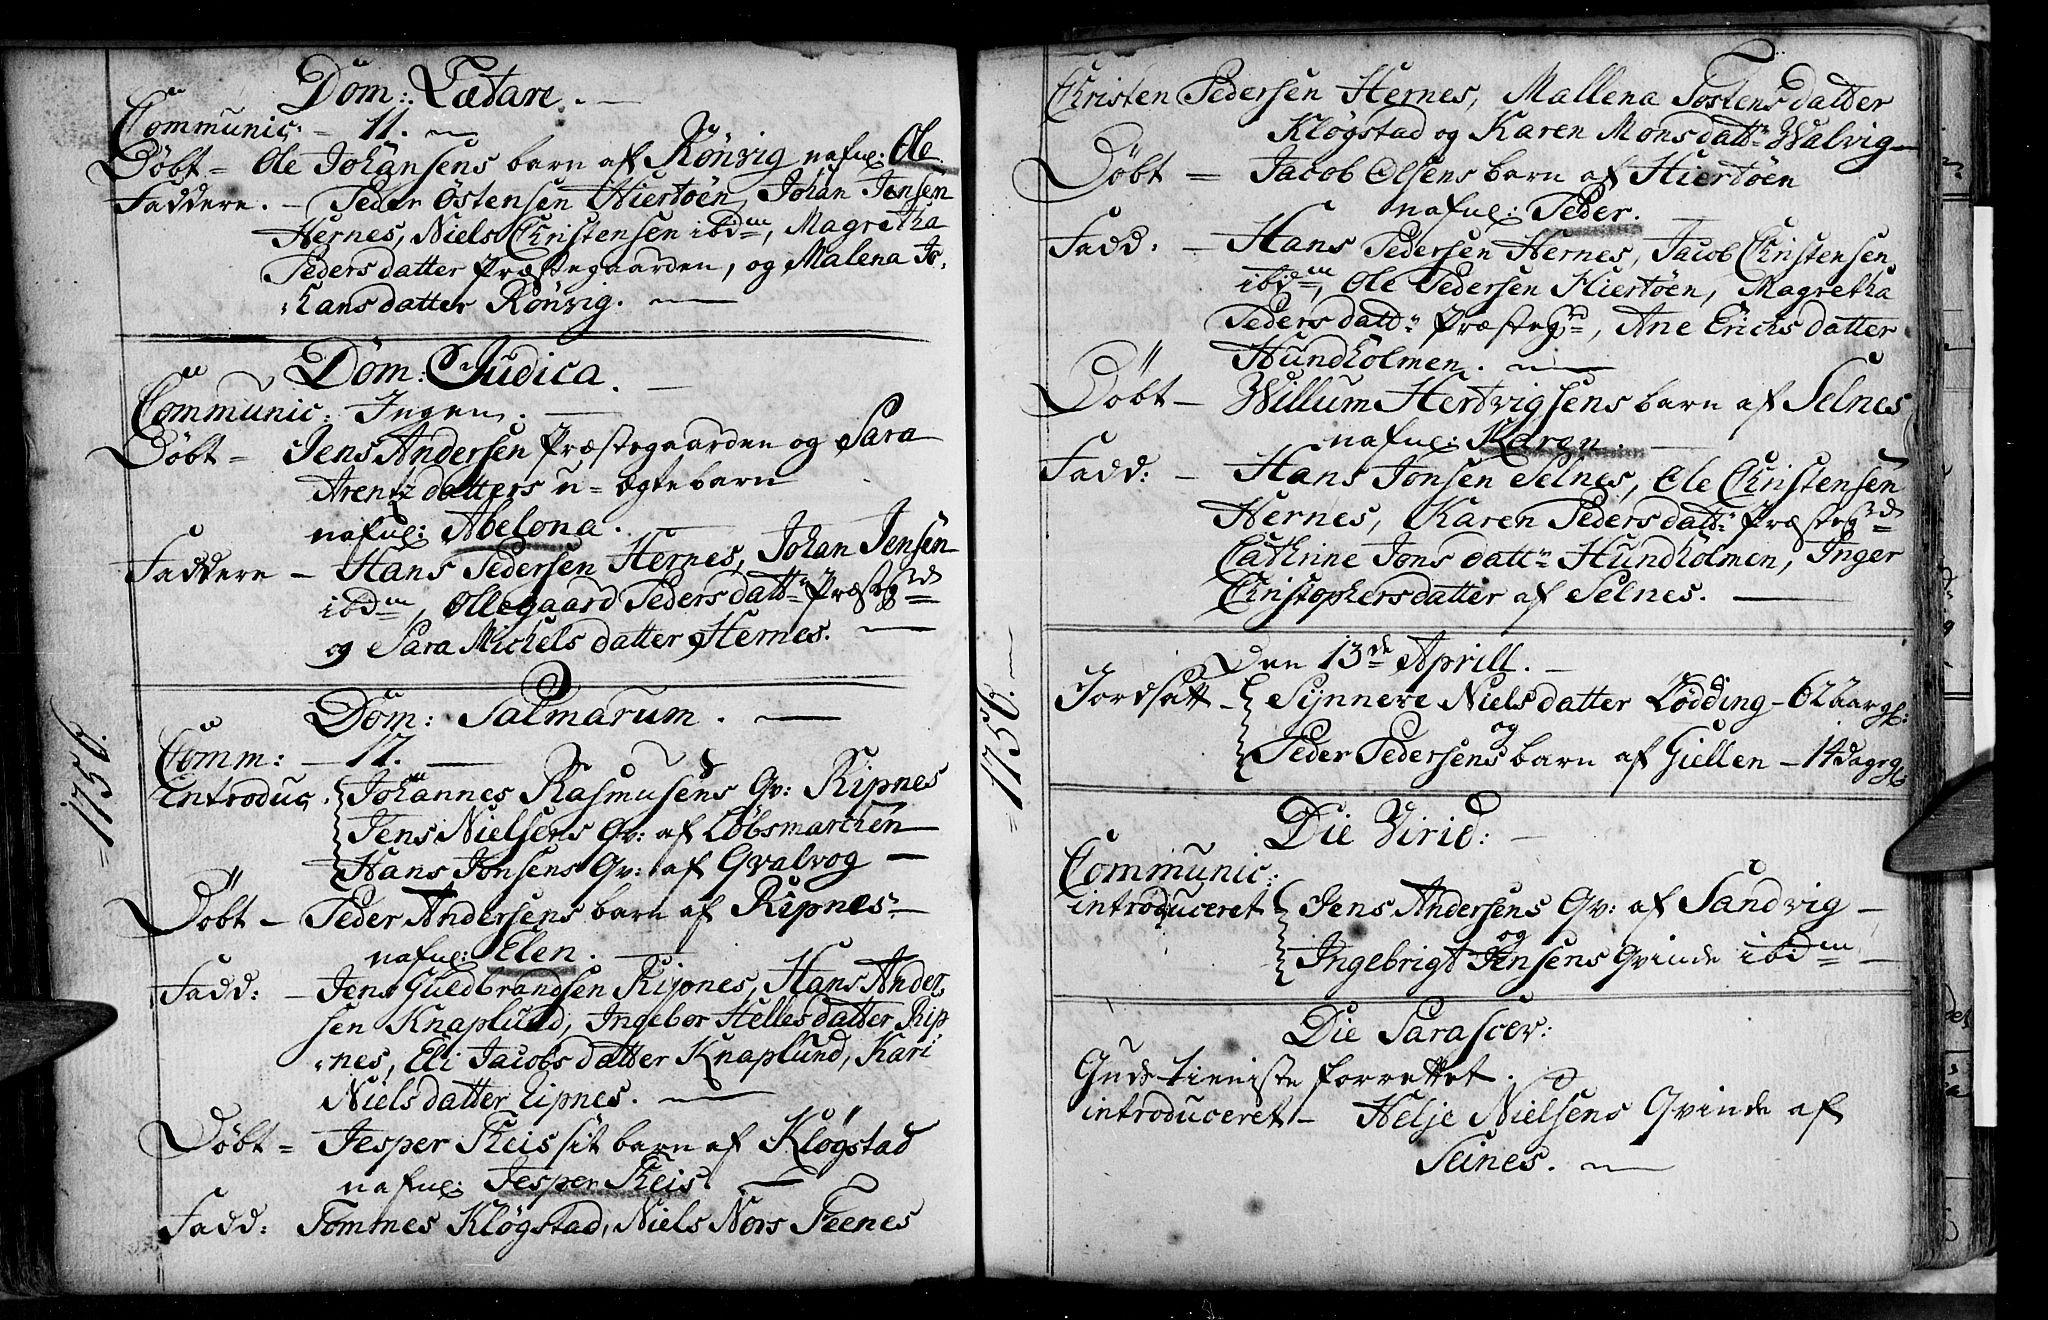 Dom: Lætare. —
Communic: — 11. —
Döbt = Ole Johansens barn af Rönvig nafnl: Ole.
Faddere. — Peder Östensen Hiertöen, Johan Jensen
Hernes, Niels Christensen ibidm, Magretha
Peders datter Præstegaarden, og Malena Jo-
hans datter Rönvig. —
Dom: Judica. —
Communic: Ingen. —
Döbt = Jens Andersen Præstegaarden og Sara
Arentz datters u-ægte barn
nafnl: Abelona.
Faddere — Hans Pedersen Hernes, Johan Jensen
ibdm, Ollegaard Peders dattr Præstegrd
og Sara Michels datter Hernes. —
Dom: Palmarum. —
Comm: — 17. —
introduc. Johannes Rasmusens Qv: Ripnes
Jens Nielsens Qv: af Löbsmarchen
Hans Jonsens Qv: af Qvalvog —
Döbt — Peder Andersens barn af Ripnes —
nafnl: Elen. —
Fadd: — Jens Guldbrandsen Ripnes, Hans Ander-
sen Knaplund, Ingebor Helles datter Rip-
nes, Eli Jacobs datter Knaplund, Kari
Niels datter Ripnes. —
Döbt = Jesper Reis sit barn af Klögstad
nafnl: Jesper Reis. —
Fadd: Tommes Klögstad, Niels Nors Teenes
1756.
1756.
Christen Pedersen Hernes, Mallena Tostens datter
Klögstad og Karen Mons dattr Walvig —
Döbt = Jacob Olsens barn af Hiertöen
nafnl: Peder.
Fadd: — Hans Pedersen Hernes, Jacob Christensen
ibidm, Ole Pedersen Hiertöen, Magretha
Peders dattr Præstegrd, Ane Erichs datter
Hundholmen. —
Döbt — Willum Hertvigsens barn af Selnes
nafnl: Karen. —
Fadd: — Hans Jonsen Selnes, Ole Christensen
Hernes, Karen Peders dattr Præstegrd
Cathrine Jons dattr Hundholmen, Inger
Christophers datter af Selnes. —
Den 13de Aprill. —
Jordsatt — Synnere Niels datter Lödding — 62 aar gl:
og
Peder Pedersens barn af Giellen — 14 dage gl:
Die Virid: —
Communic:
introduceret Jens Andersens Qv: af Sandvig —
og
Ingebrigt Jensens Qvinde ibdm —
Die Parascev:
Gudstieniste forrettet.
introduceret — Helje Nielsens Qvinde af
Seines. —